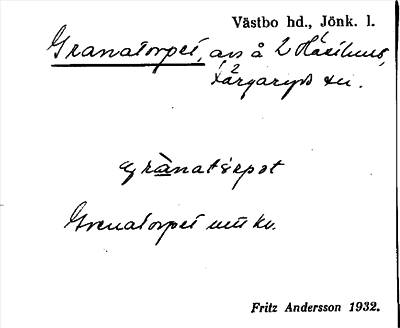 Västbo hd., Jönk. l.
Granatorpet, avs å 2 Häcklemo,
Färgaryds sn.
grànatårpət
Grenatorpet utt kv.
Fritz Andersson 1932.